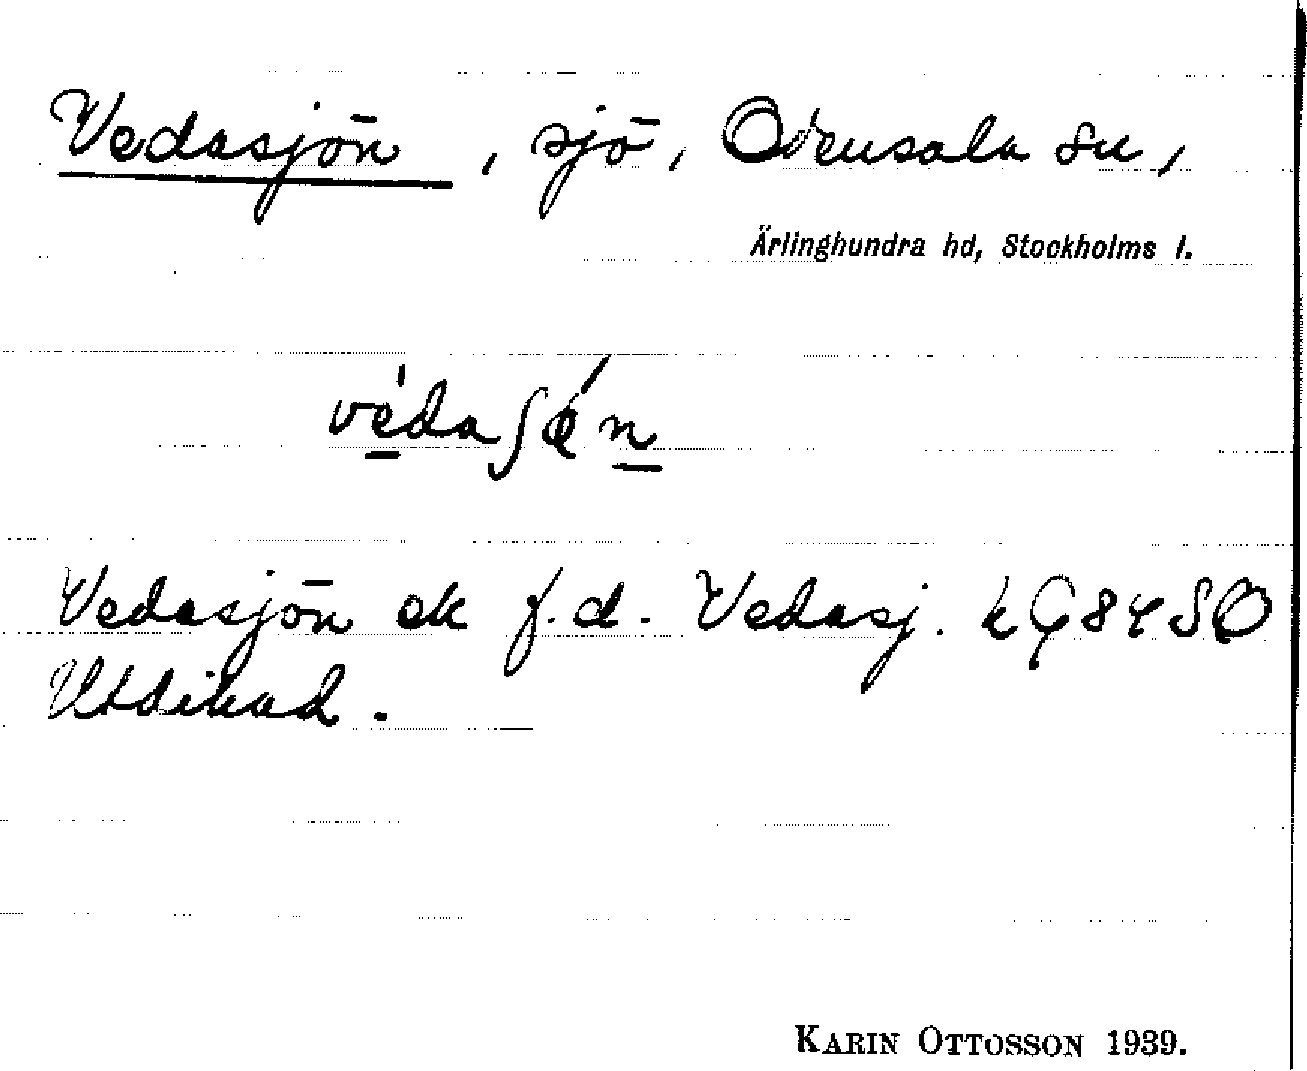 Vedasjön, sjö, Odensala sn,
Ärlinghundra hd, Stockholms l.
védaʃǿn
Vedasjön ek f.d. Vedasj. 84 SO
Utdikad.
KARIN OTTOSSON 1939.